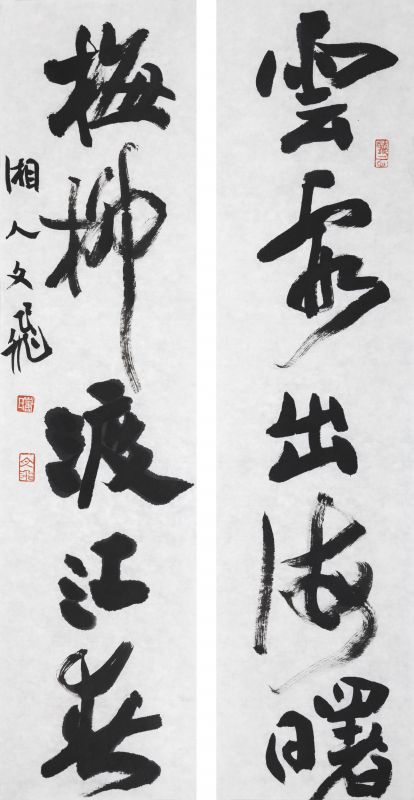 雲霞出海曙
梅柳渡江春
湘人文飛